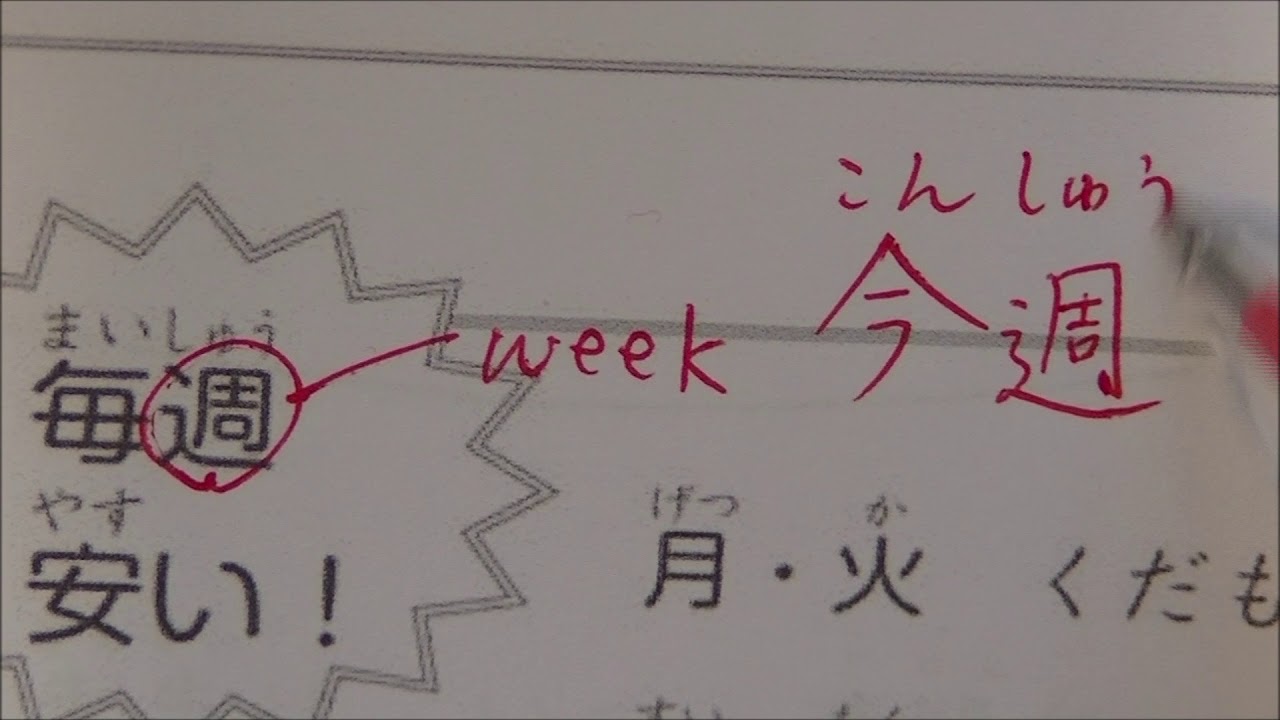 まいしゅう
毎週
やす
安い!
week
こんしゅう
今週
げつ か
月・火 くだも